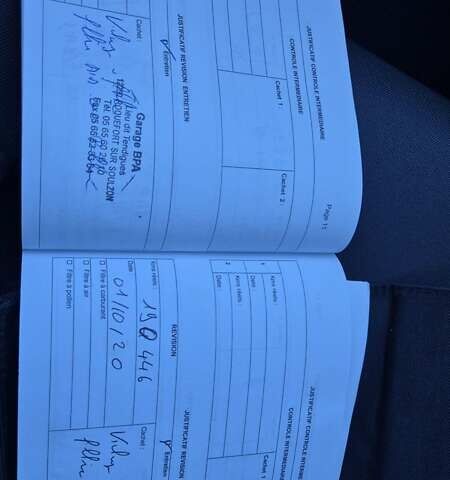 JUSTIFICATIF CONTROLE INTERMEDIAIRE
Page 11
CONTROLE INTERMEDIAIRE
Cachet 1 :
Cachet 2 :
JUSTIFICATIF REVISION ENTRETIEN
Entretien
Cachet :
Garage BPA
Lieu dit Tendigues
ROQUEFORT SUR SOULZON
Tél. 05 65 60
Vidange
JUSTIFICATIF CONTROLE
CONTROLE INTERMEDIAIRE
Cachet 1
1
Kms réels :
Date :
2
Kms réels :
Date :
REVISION
JUSTIFICATIF REVISION
Kms réels : 190 446
Entretien
Date 01/10/20
Cachet :
Filtre à carburant
Filtre à air
Filtre à pollen